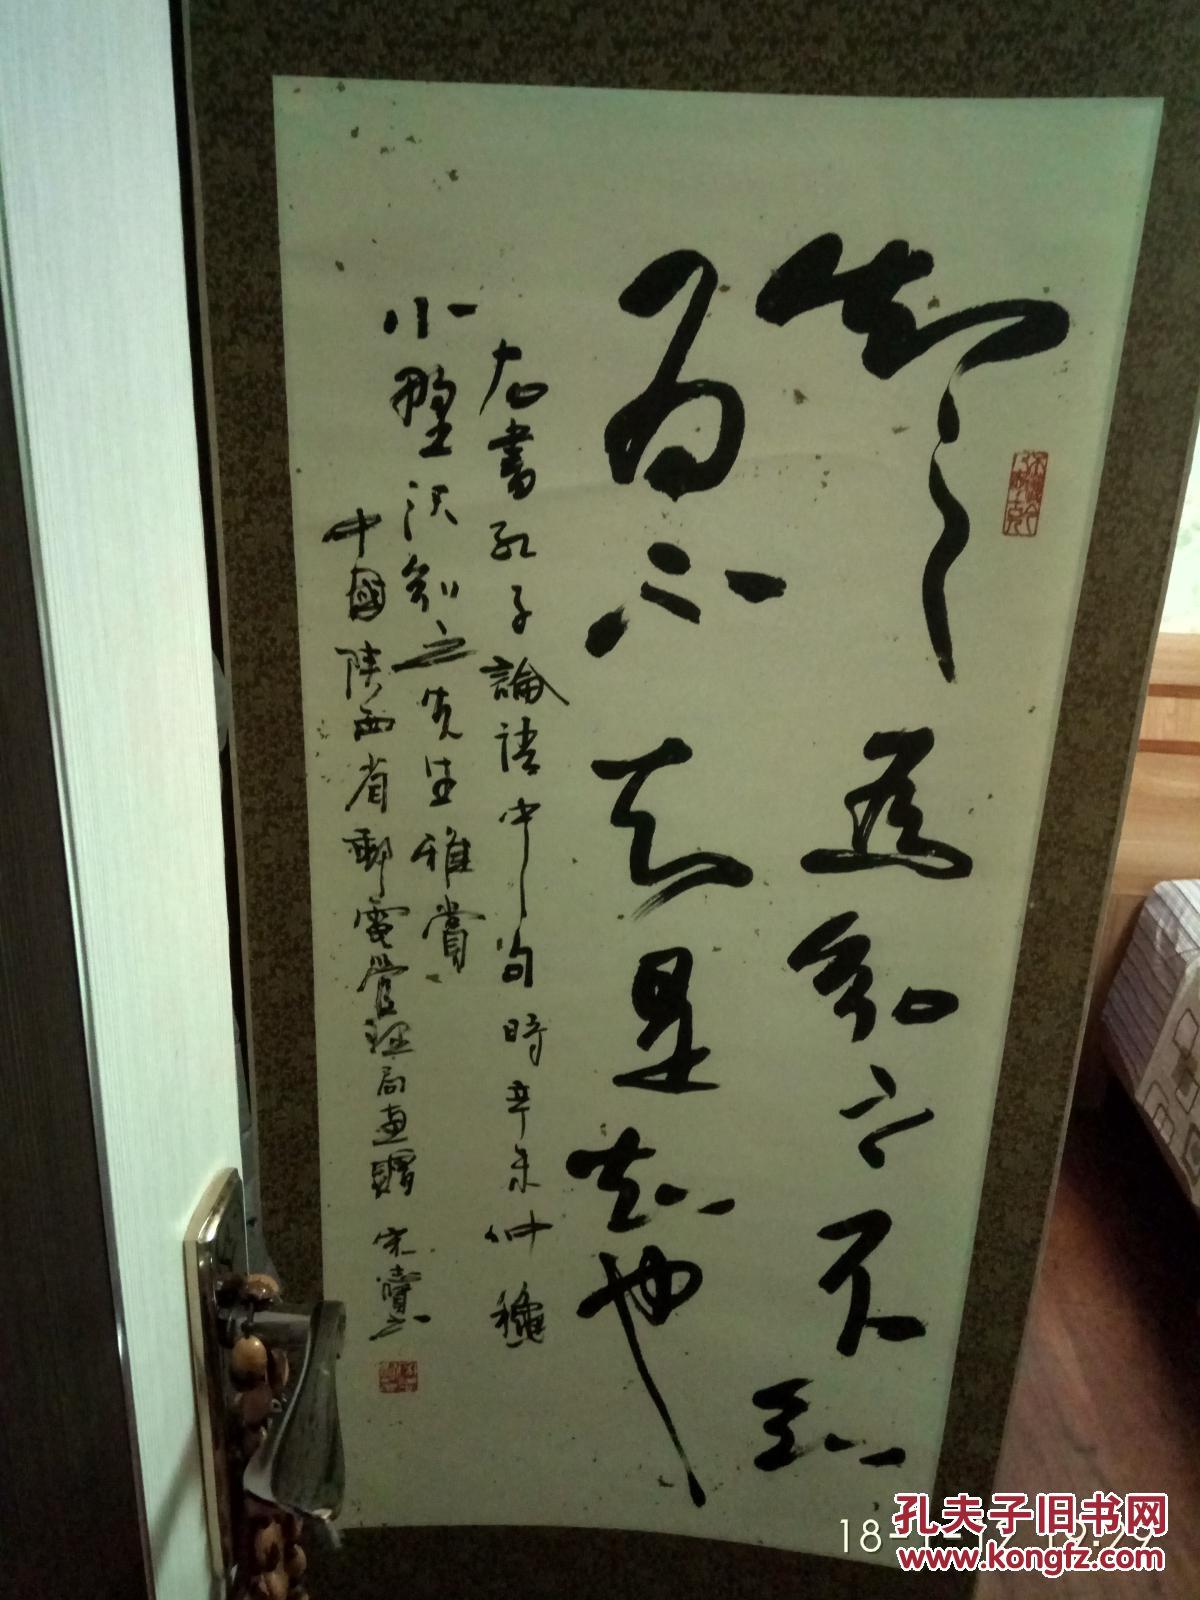 知之為知之不知
為不知是知也
右書孔子論語中句時辛未仲穐
小野沢知之先生雅賞
中國陕西省郵電管理局惠贈 宋
18-1-12 19:29
孔夫子旧书网
www.kongfz.com